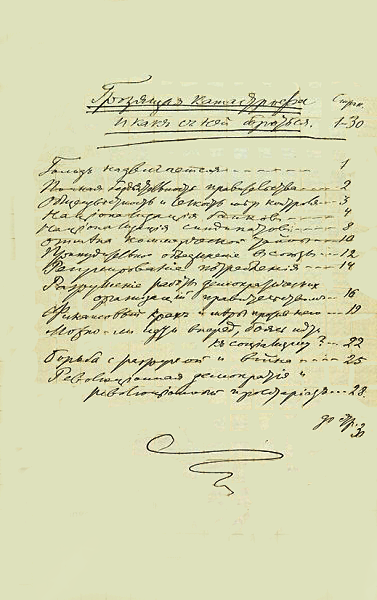 Грозящая катастрофа Стран.
и как с ней бороться. 1-30
Голод надвигается 1
Полная бездеятельность правительства 2
Общеизвестность и легкость мер контроля 3
Национализация банков 4
Национализация синдикатов 8
Отмена коммерческой тайны 10
Принудительное объединение в союзы 12
Регулирование потребления 14
Разрушение работы демократических
организаций правительством 16
Финансовый крах и меры против него 19
Можно ли идти вперед, боясь идти
к социализму? 22
Борьба с разрухой и война 25
Революционная демократия и
революционный пролетариат 28
до стр. 30